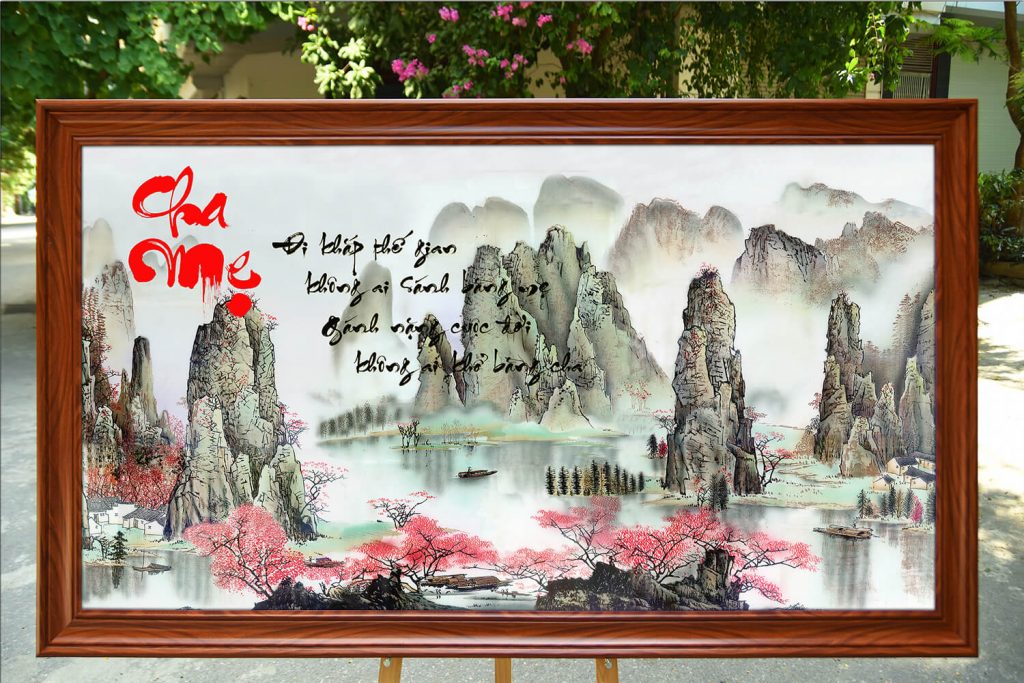 Cha
Mẹ
Đi khắp thế gian
không ai sánh bằng mẹ
gánh nặng cuộc đời
không ai khổ bằng cha